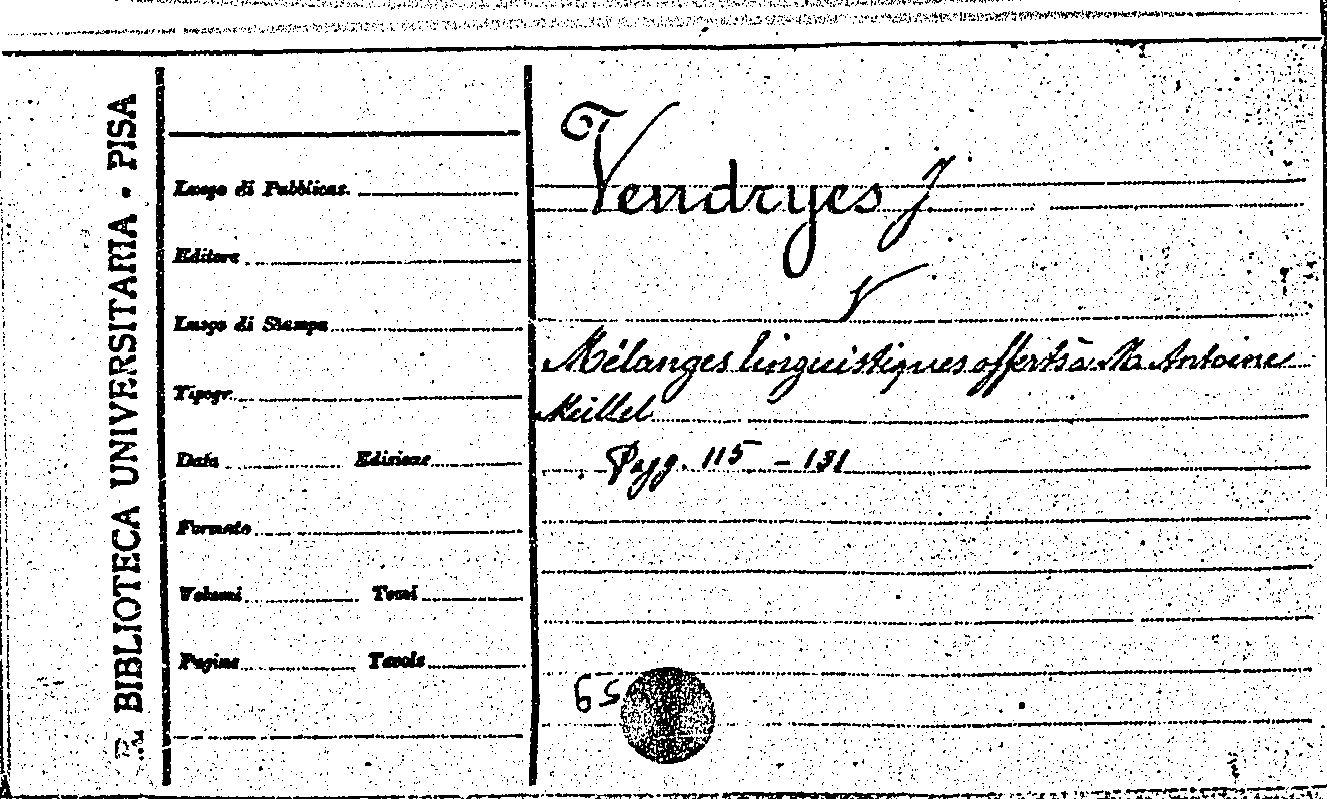 R. BIBLIOTECA UNIVERSITARIA - PISA
Luogo di Pubblicaz.
Editore
Luogo di Stampa
Tipogr.
Data Edizione
Formato
Volumi Tomi
Pagine Tavole
Vendryes J
Mélanges linguistiques offerts à M. Antoine
Meillet
Pagg. 115 - 131